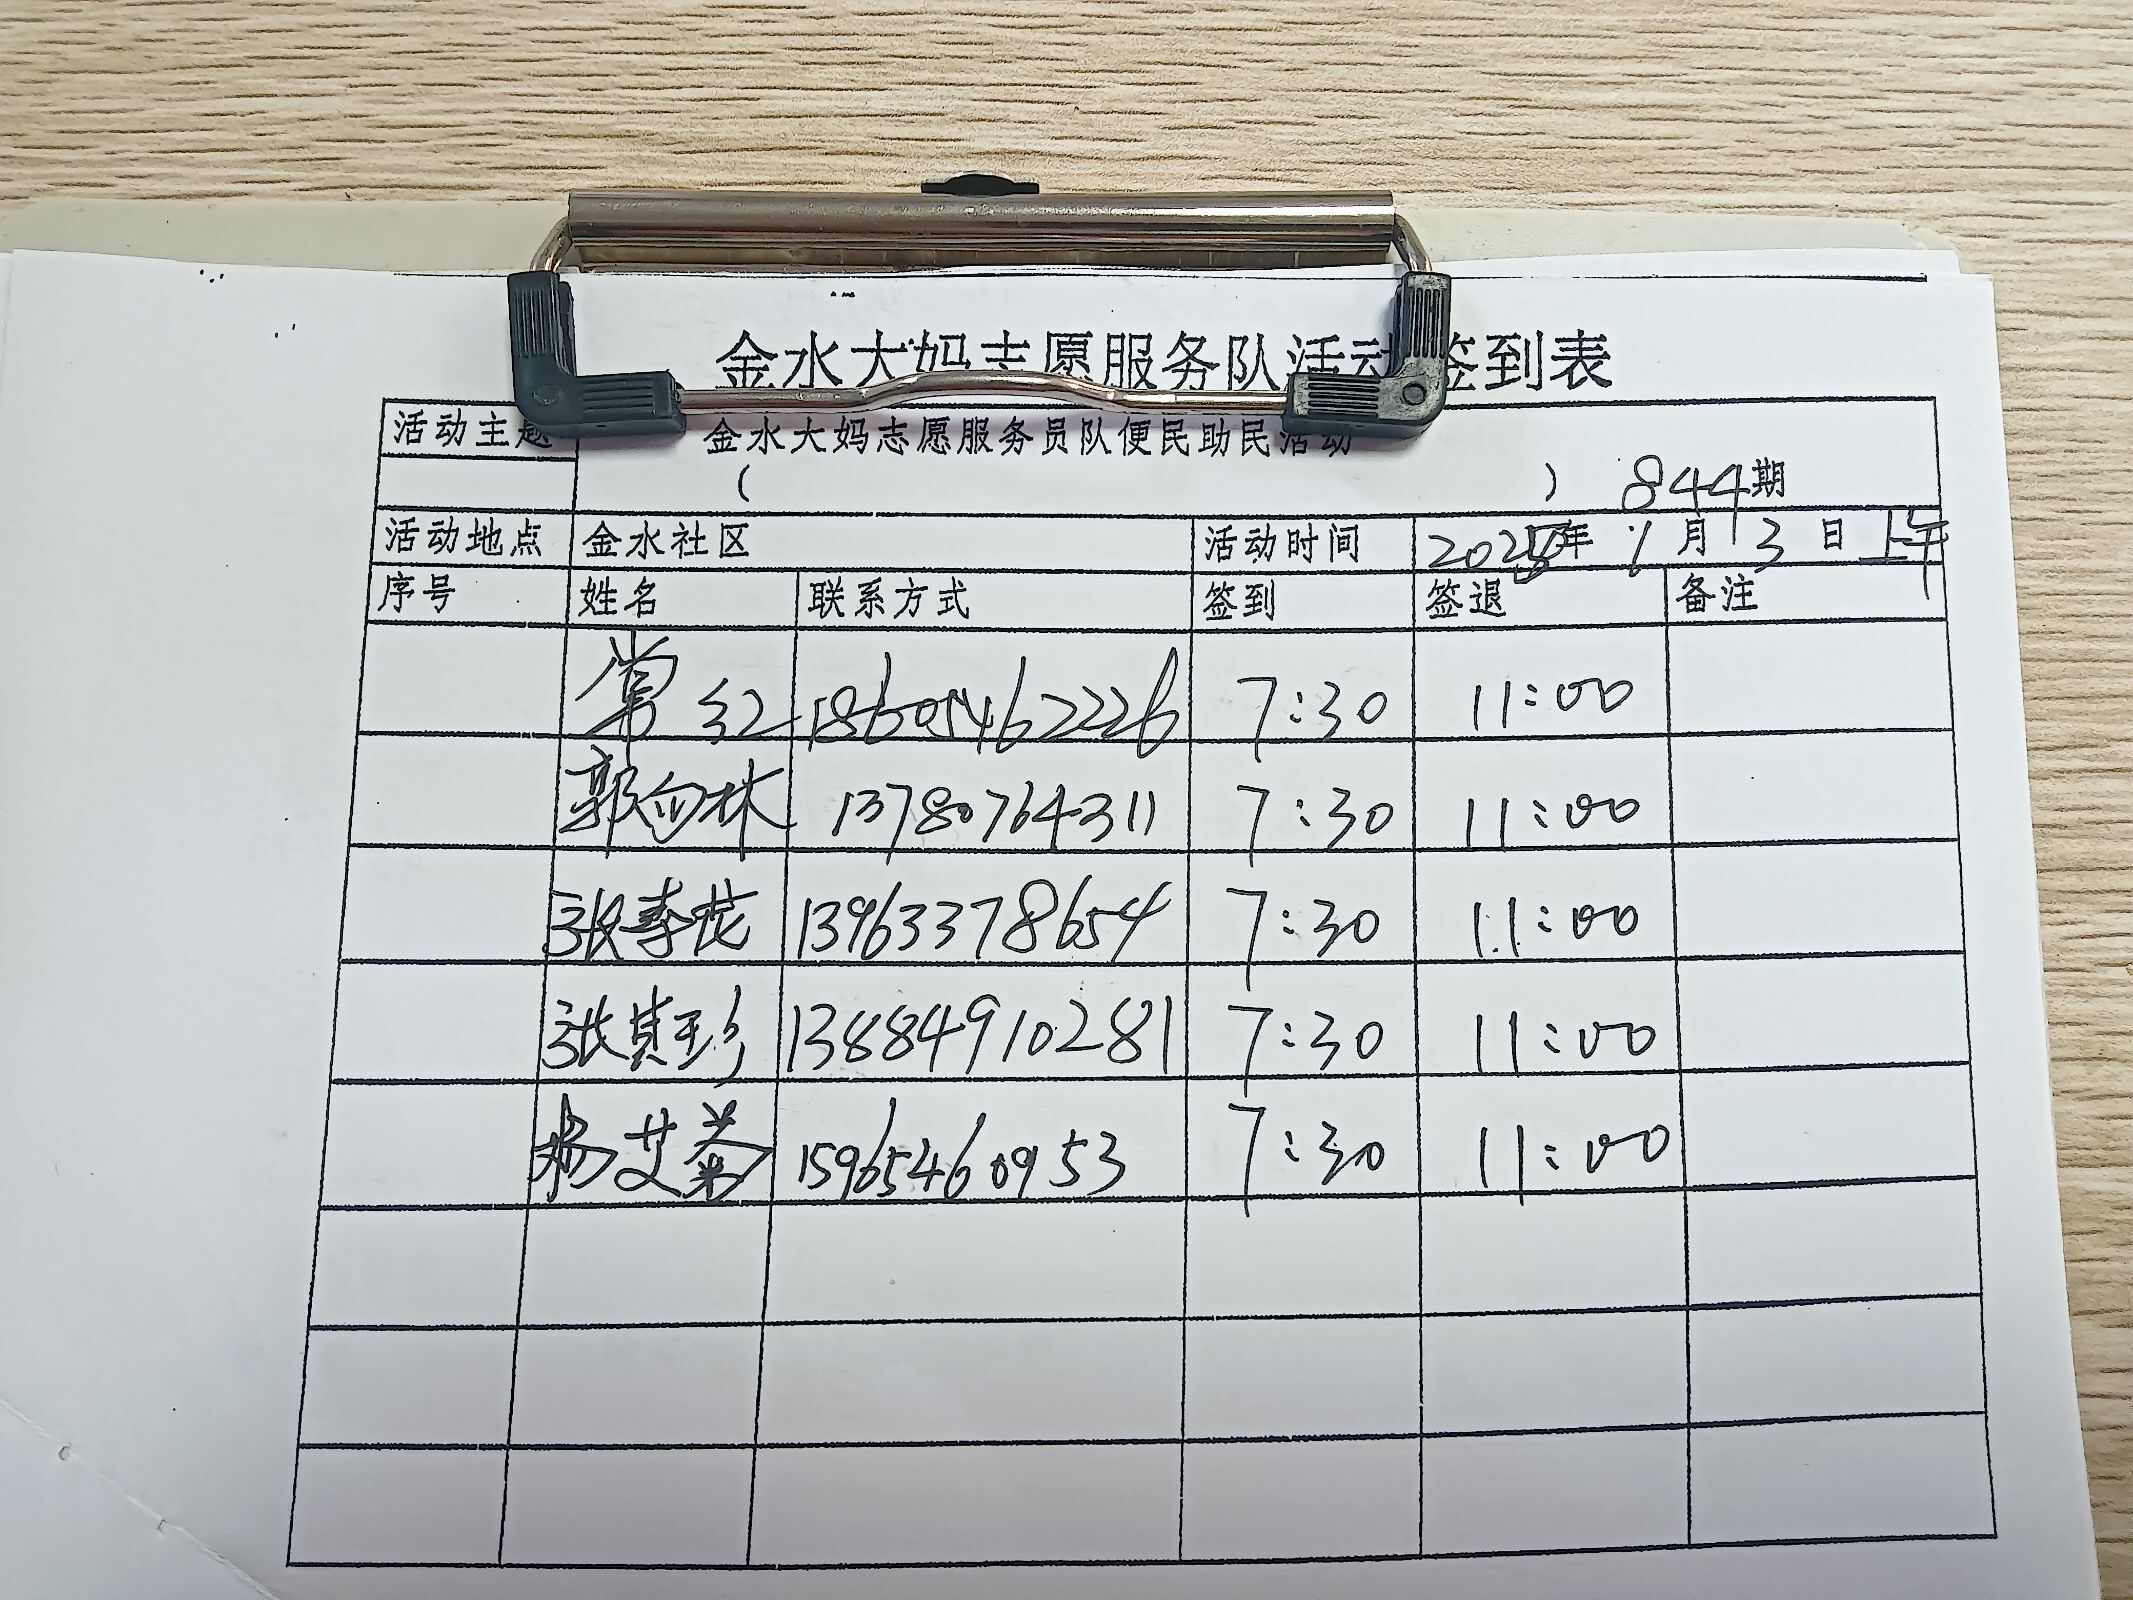 金水大妈志愿服务队活动签到表
活动主题 金水大妈志愿服务员队便民助民活动
( ) 844期
活动地点 金水社区 活动时间 2025年1月3日上午
序号 姓名 联系方式 签到 签退 备注
常红 18605462226 7:30 11:00
郭向林 13780764311 7:30 11:00
张春花 13963378654 7:30 11:00
张其珍 13884910281 7:30 11:00
杨艾菊 15965460953 7:30 11:00